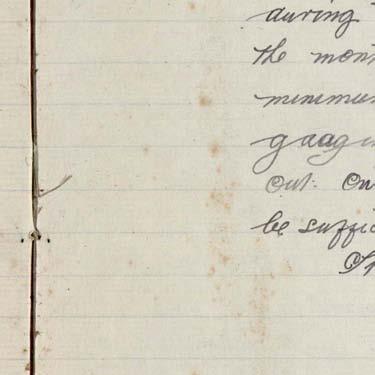 during
the mon
minimum
gaagin
out. On
be suffic